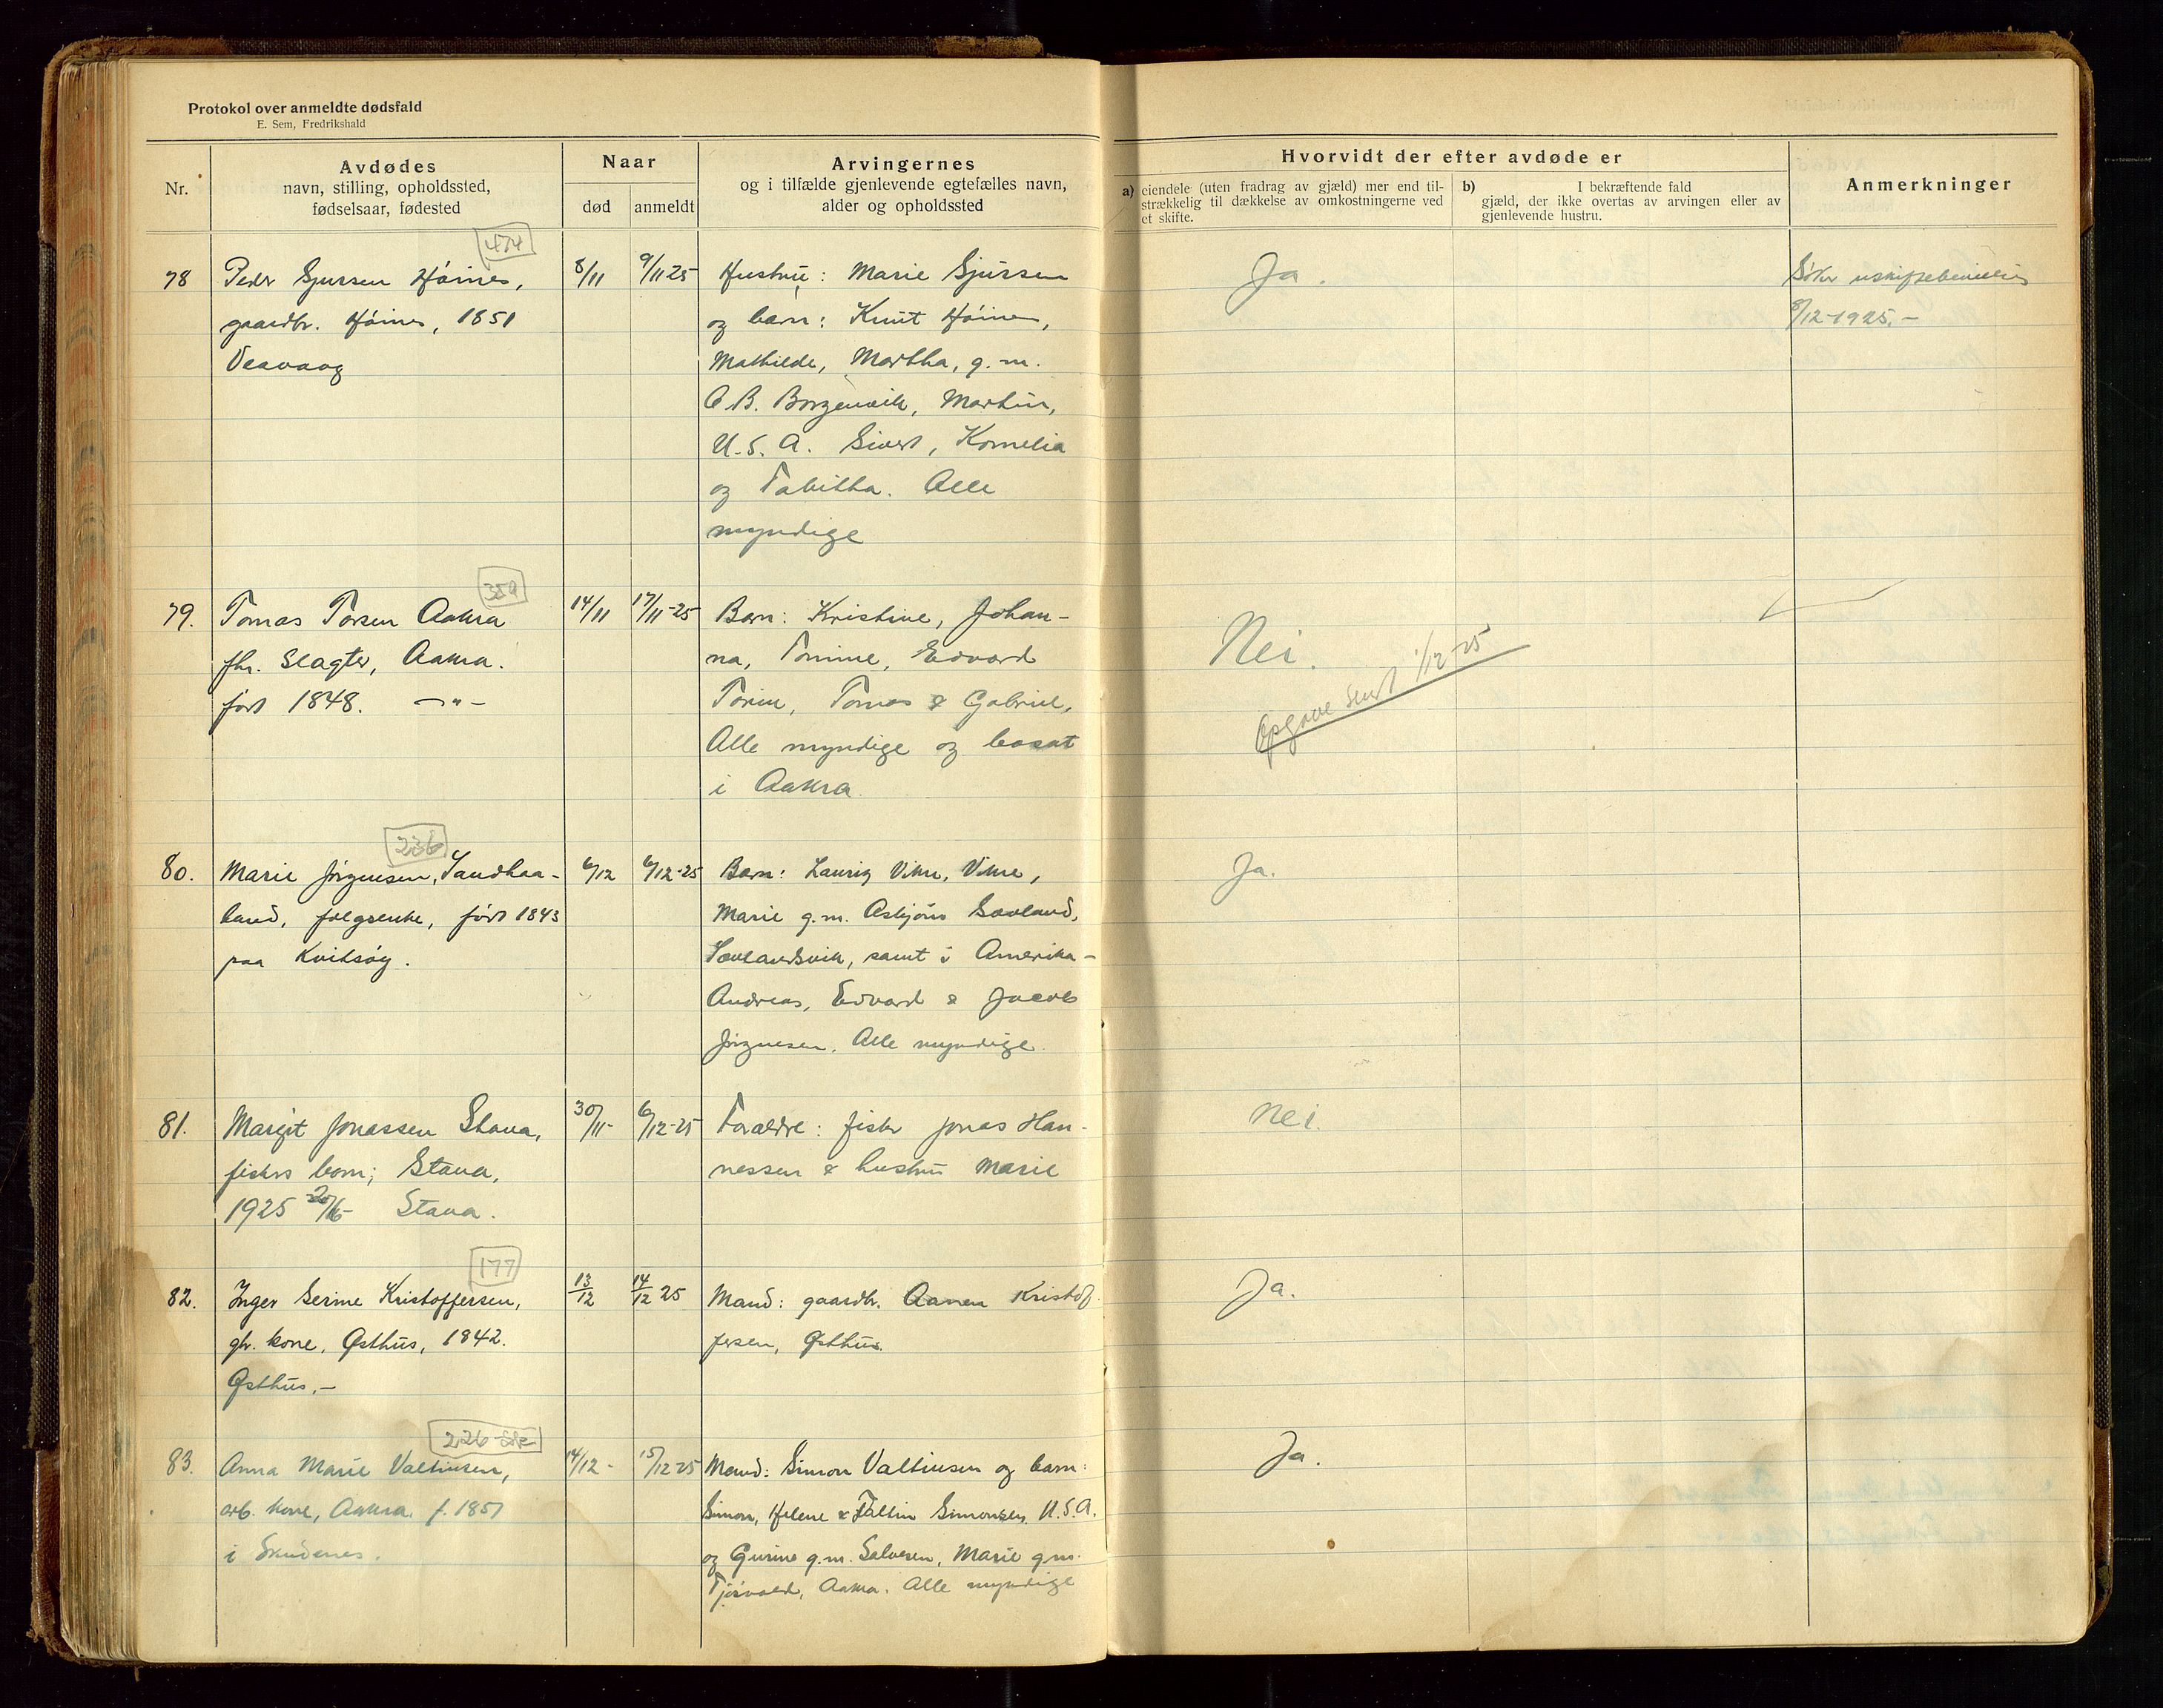 Protokol over anmeldte dødsfald
E. Sem, Fredrikshald
Nr.
Avdødes
navn, stilling, opholdssted,
fødselsaar, fødested
Naar
død
anmeldt
Arvingernes
og i tilfælde gjenlevende egtefælles navn,
alder og opholdssted
Hvorvidt der efter avdøde er
a) eiendele (uten fradrag av gjæld) mer end til-
strækkelig til dækkelse av omkostningerne ved
et skifte.
b) I bekræftende fald
gjæld, der ikke overtas av arvingen eller av
gjenlevende hustru.
Anmerkninger
474
78 Peder Sjursen Høines,
gaardbr. Høines, 1851
Veavaag
8/11
9/11 25
Hustru: Marie Sjursen
og barn: Knut Høines,
Mathilde, Martha, g.m.
O.B. Borgenvik, Martin,
U.S.A. Sivert, Kornelia
og Tabitha. Alle
myndige
Ja.
Søker uskiftebevilling
8/12-1925.-
359
79. Tomas Torsen Aakra
fhv. slagter, Aakra.
født 1848. -"-
14/11
17/11-25
Barn: Kristine, Johan-
na, Tomine, Edvard
Torin, Tomas & Gabriel,
Alle myndige og bosat
i Aakra.
Nei.
Opgave sendt 1/12-25
236
80. Marie Jørgensen, Sandhaa-
land, folgeenke, født 1843
paa Kvitsøy.
6/12
6/12-25
Barn: Lauritz Vikre, Vikre,
Marie g.m. Asbjørn Sævland,
Sævlandsvik, samt i Amerika -
Andreas, Edvard & Jacob
Jørgensen. Alle myndige.
Ja.
81. Margit Jonassen Stava,
fiskers barn; Stava,
1925 Stava.
30/11-
6/12-25
Forældre: fisker Jonas Han-
nessen & hustru Marie
nei.
177
82. Inger Serine Kristoffersen,
gbr. kone, Østhus, 1842.
Østhus.-
13/12
14/12 25
Mand: gaardbr. Aanen Kristof-
fersen, Østhus.
Ja.
226
83. Anna Marie Valtinsen,
arb. kone, Aakra. f. 1851
i Skudenes.
14/12-
15/12-25
Mand: Simon Valtinsen og barn:
Simon, Helene & Faltin Simonsen, U.S.A.
og Gurine g.m. Salvesen, Marie g.m.
Tjøsvold, Aakra. Alle myndige
Ja.